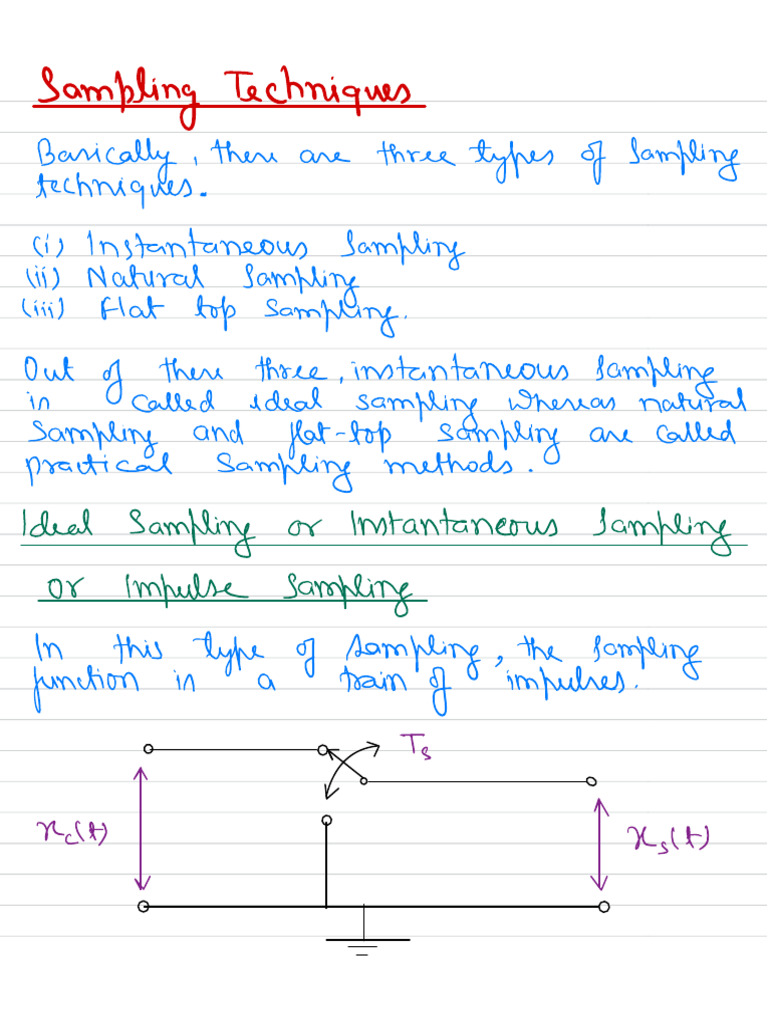 Sampling Techniques
Basically, there are three types of sampling
techniques.
(i) Instantaneous Sampling
(ii) Natural Sampling
(iii) Flat top sampling.
Out of there three, instantaneous sampling
in called ideal sampling whereas natural
sampling and flat-top sampling are called
practical sampling methods.
Ideal Sampling or Instantaneous Sampling
or Impulse Sampling
In this type of sampling, the sampling
function in a train of impulses.
Ts
xc(t)
xs(t)